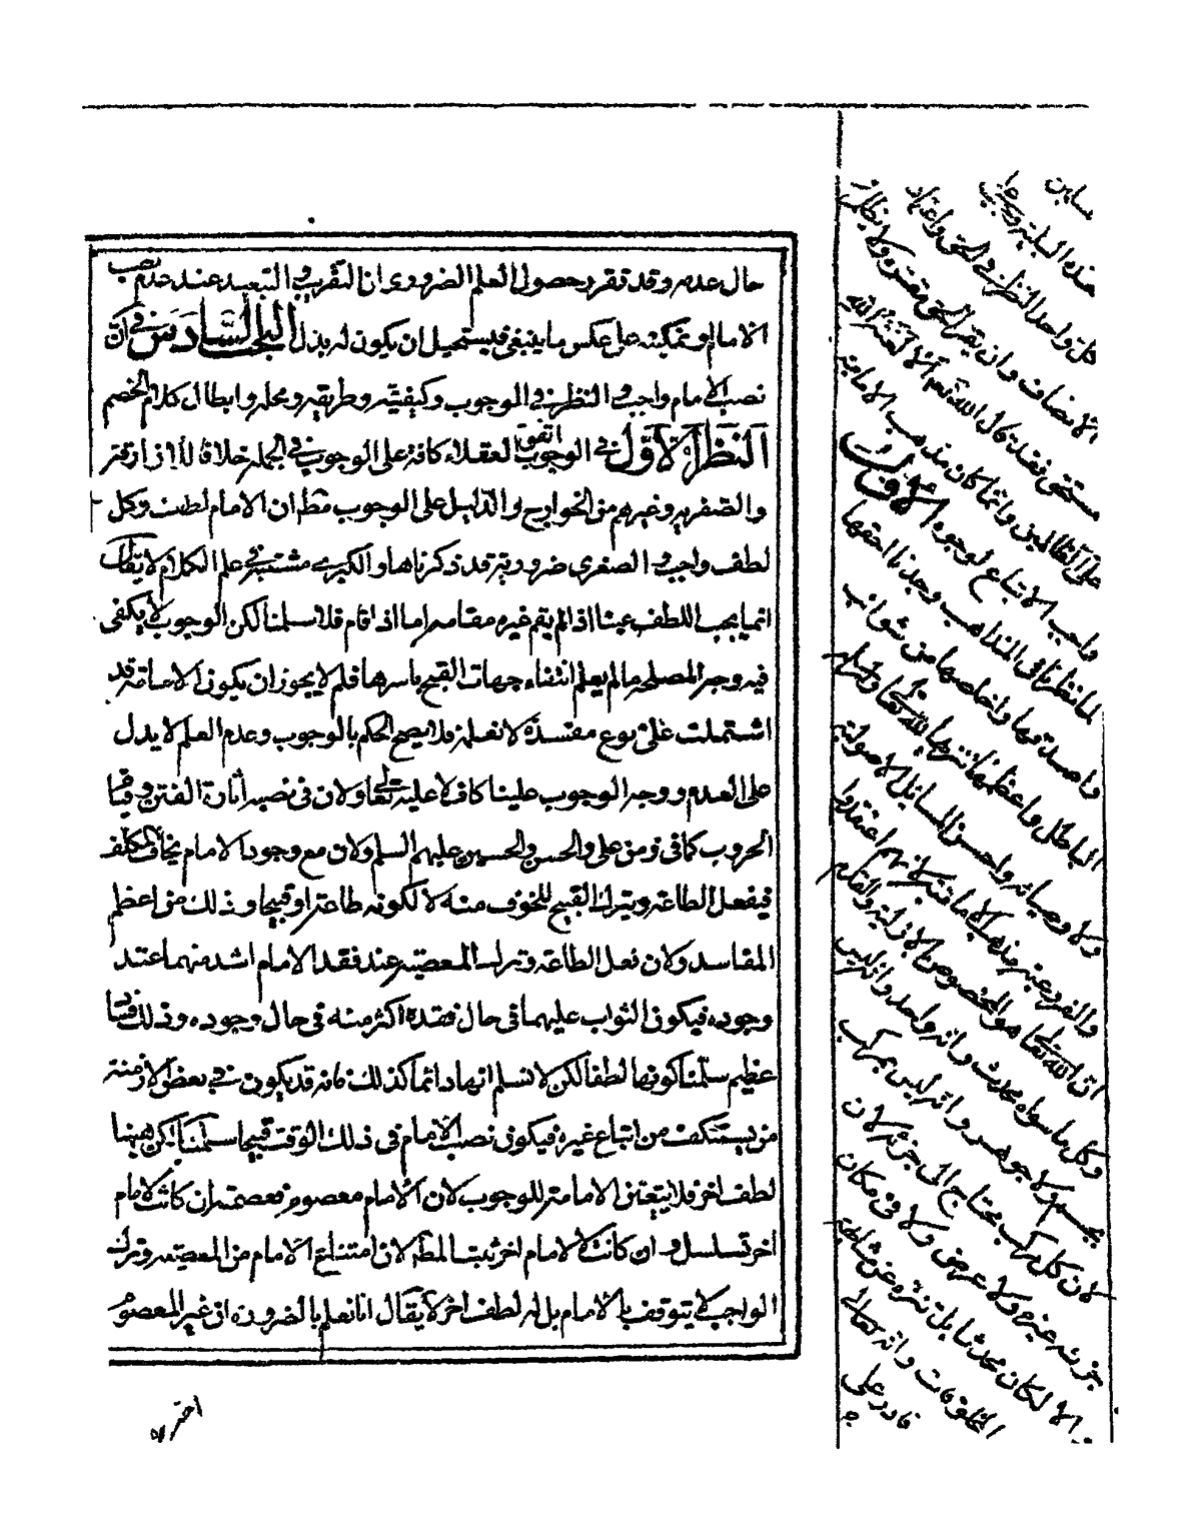 حال عدمه وقد تقرر حصول العلم الضروري ان التقريب و التبعيد عند عدم نصب
الامام او تمكينه على عكس ما ينبغي فيستحيل ان يكون له بدل البحث السادس في ان
نصب الامام واجب و النظر في الوجوب وكيفيته وطريقه ومحله وابطال كلام الخصم
النظر الاول في الوجوب اتفق العقلاء كافة على الوجوب في الجمله خلافا للازارقة
والصفريه وغيرهم من الخوارج والدليل على الوجوب مطلقا ان الامام لطف وكل
لطف واجب الصغرى ضروريه قد ذكرناها والكبرى مثبتة في علم الكلام لا يقال
انما يجب اللطف عينا اذا لم يقم غيره مقامه اما اذا قام فلا سلمنا لكن الوجوب لا يكفي
فيه وجه المصلحه ما لم يعلم انتفاء جهات القبح باسرها فلم لا يجوز ان يكون الامامة قد
اشتملت على نوع مفسدة لا نعلمه فلا يصح الحكم بالوجوب وعدم العلم لا يدل
على العدم ووجه الوجوب علينا كاف لا عليه تعالى ولان في نصبه اثارة الفتن وقيام
الحروب كما في زمن علي والحسن والحسين عليهم السلم ولان مع وجود الامام يخاف المكلف
فيفعل الطاعة ويترك القبيح للخوف منه لا لكونه طاعة او قبيحا وذلك من اعظم
المفاسد ولان فعل الطاعة وترك المعصيه عند فقد الامام اشد منهما عند
وجوده فيكون الثواب عليهما في حال فقده اكثر منه في حال وجوده وذلك فساد
عظيم سلمنا كونها لطفا لكن لا نسلم انها دائما كذلك فانه قد يكون في بعض الازمنة
من يستنكف من اتباع غيره فيكون نصب الامام في ذلك الوقت قبيحا سلمنا لكن هيهنا
لطف اخر فلا يتعين الامامة للوجوب لان الامام معصوم فعصمته ان كانت لامام
اخر تسلسل وان كانت لا لامام اخر ثبت المط لان امتناع الامام من المعصيه وترك
الواجب لا يتوقف بالامام بل له لطف اخر لا يقال انا نعلم بالضرورة ان غير المعصوم
هذه البلية
كل واحد النظر في الحق واعتماد
الانصاف وان يقر الحق مقره ولا يظلم
مستحقى فقد قال الله تعالى الا لعنة الله
على الظالمين وانما كان مذهب الامامية
واجب الاتباع لوجوه الاول
لما نظرنا في المذاهب وجدنا احقها
واصدقها واخلصها من شوائب
الباطل واعظمها تنزيها لله تعالى ولرسله
ولاوصيائه واحسن المسائل الاصولية
والفروعية مذهب الامامية لانهم اعتقدوا
ان الله تعالى هو المخصوص بالازلية والقدم
وكل ما سواه محدث وانه واحد وانه ليس
بجسم ولا جوهر وانه ليس بمركب
لان كل مركب يحتاج الى جزئه لان
جزئه غيره ولا عرض ولا في مكان
والا لكان محدثا بل نزهه عن مشابهة
المخلوقات وانه تعالى
قادر على